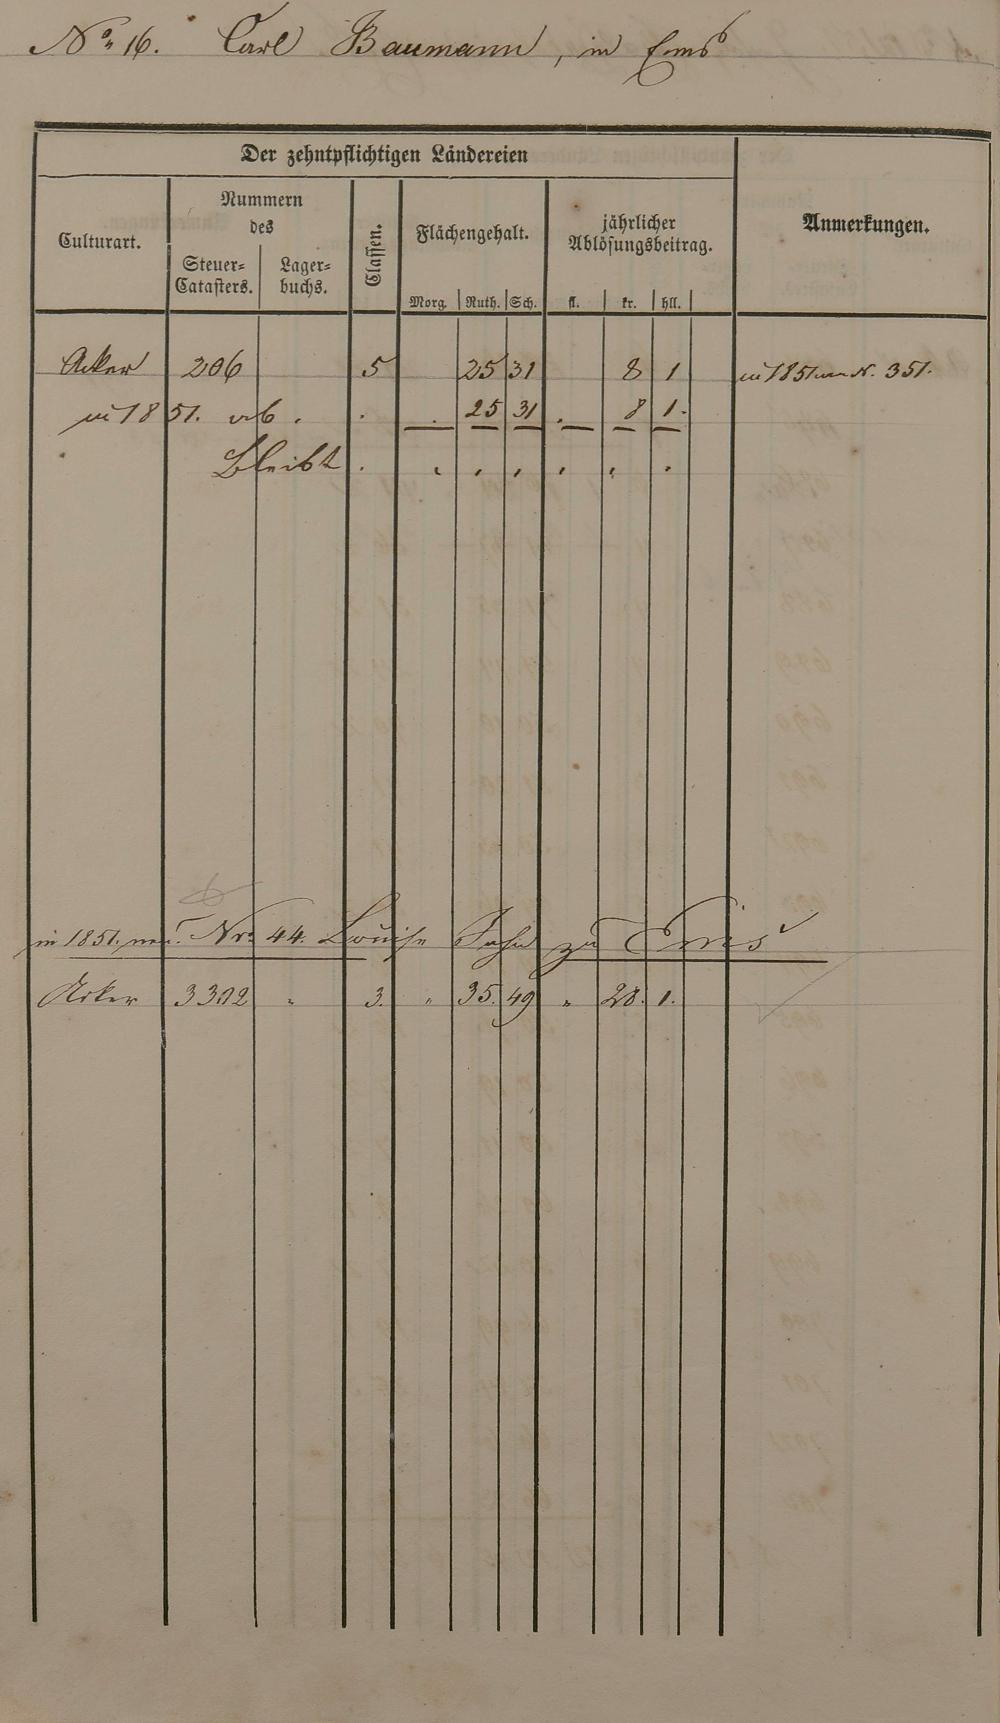 No. 16. Carl Baumann, in Ems
Der zehntpflichtigen Ländereien
Culturart.
Nummern
des
Steuer-
Catasters.
Lager-
buchs.
Classen.
Flächengehalt.
Morg.
Ruth.
Sch.
jährlicher
Ablösungsbeitrag.
fl.
kr.
hll.
Anmerkungen.
Acker 206 5 25 31 8 1 in 1851 N. 351.
in 1851. ab . . . 25 31 . 8 1.
Bleibt . . . . . . .
in 1851. neu. Nro 44. Louise Jahn zu Ems
Acker 3302 " 3. " 35. 49 " 28. 1.